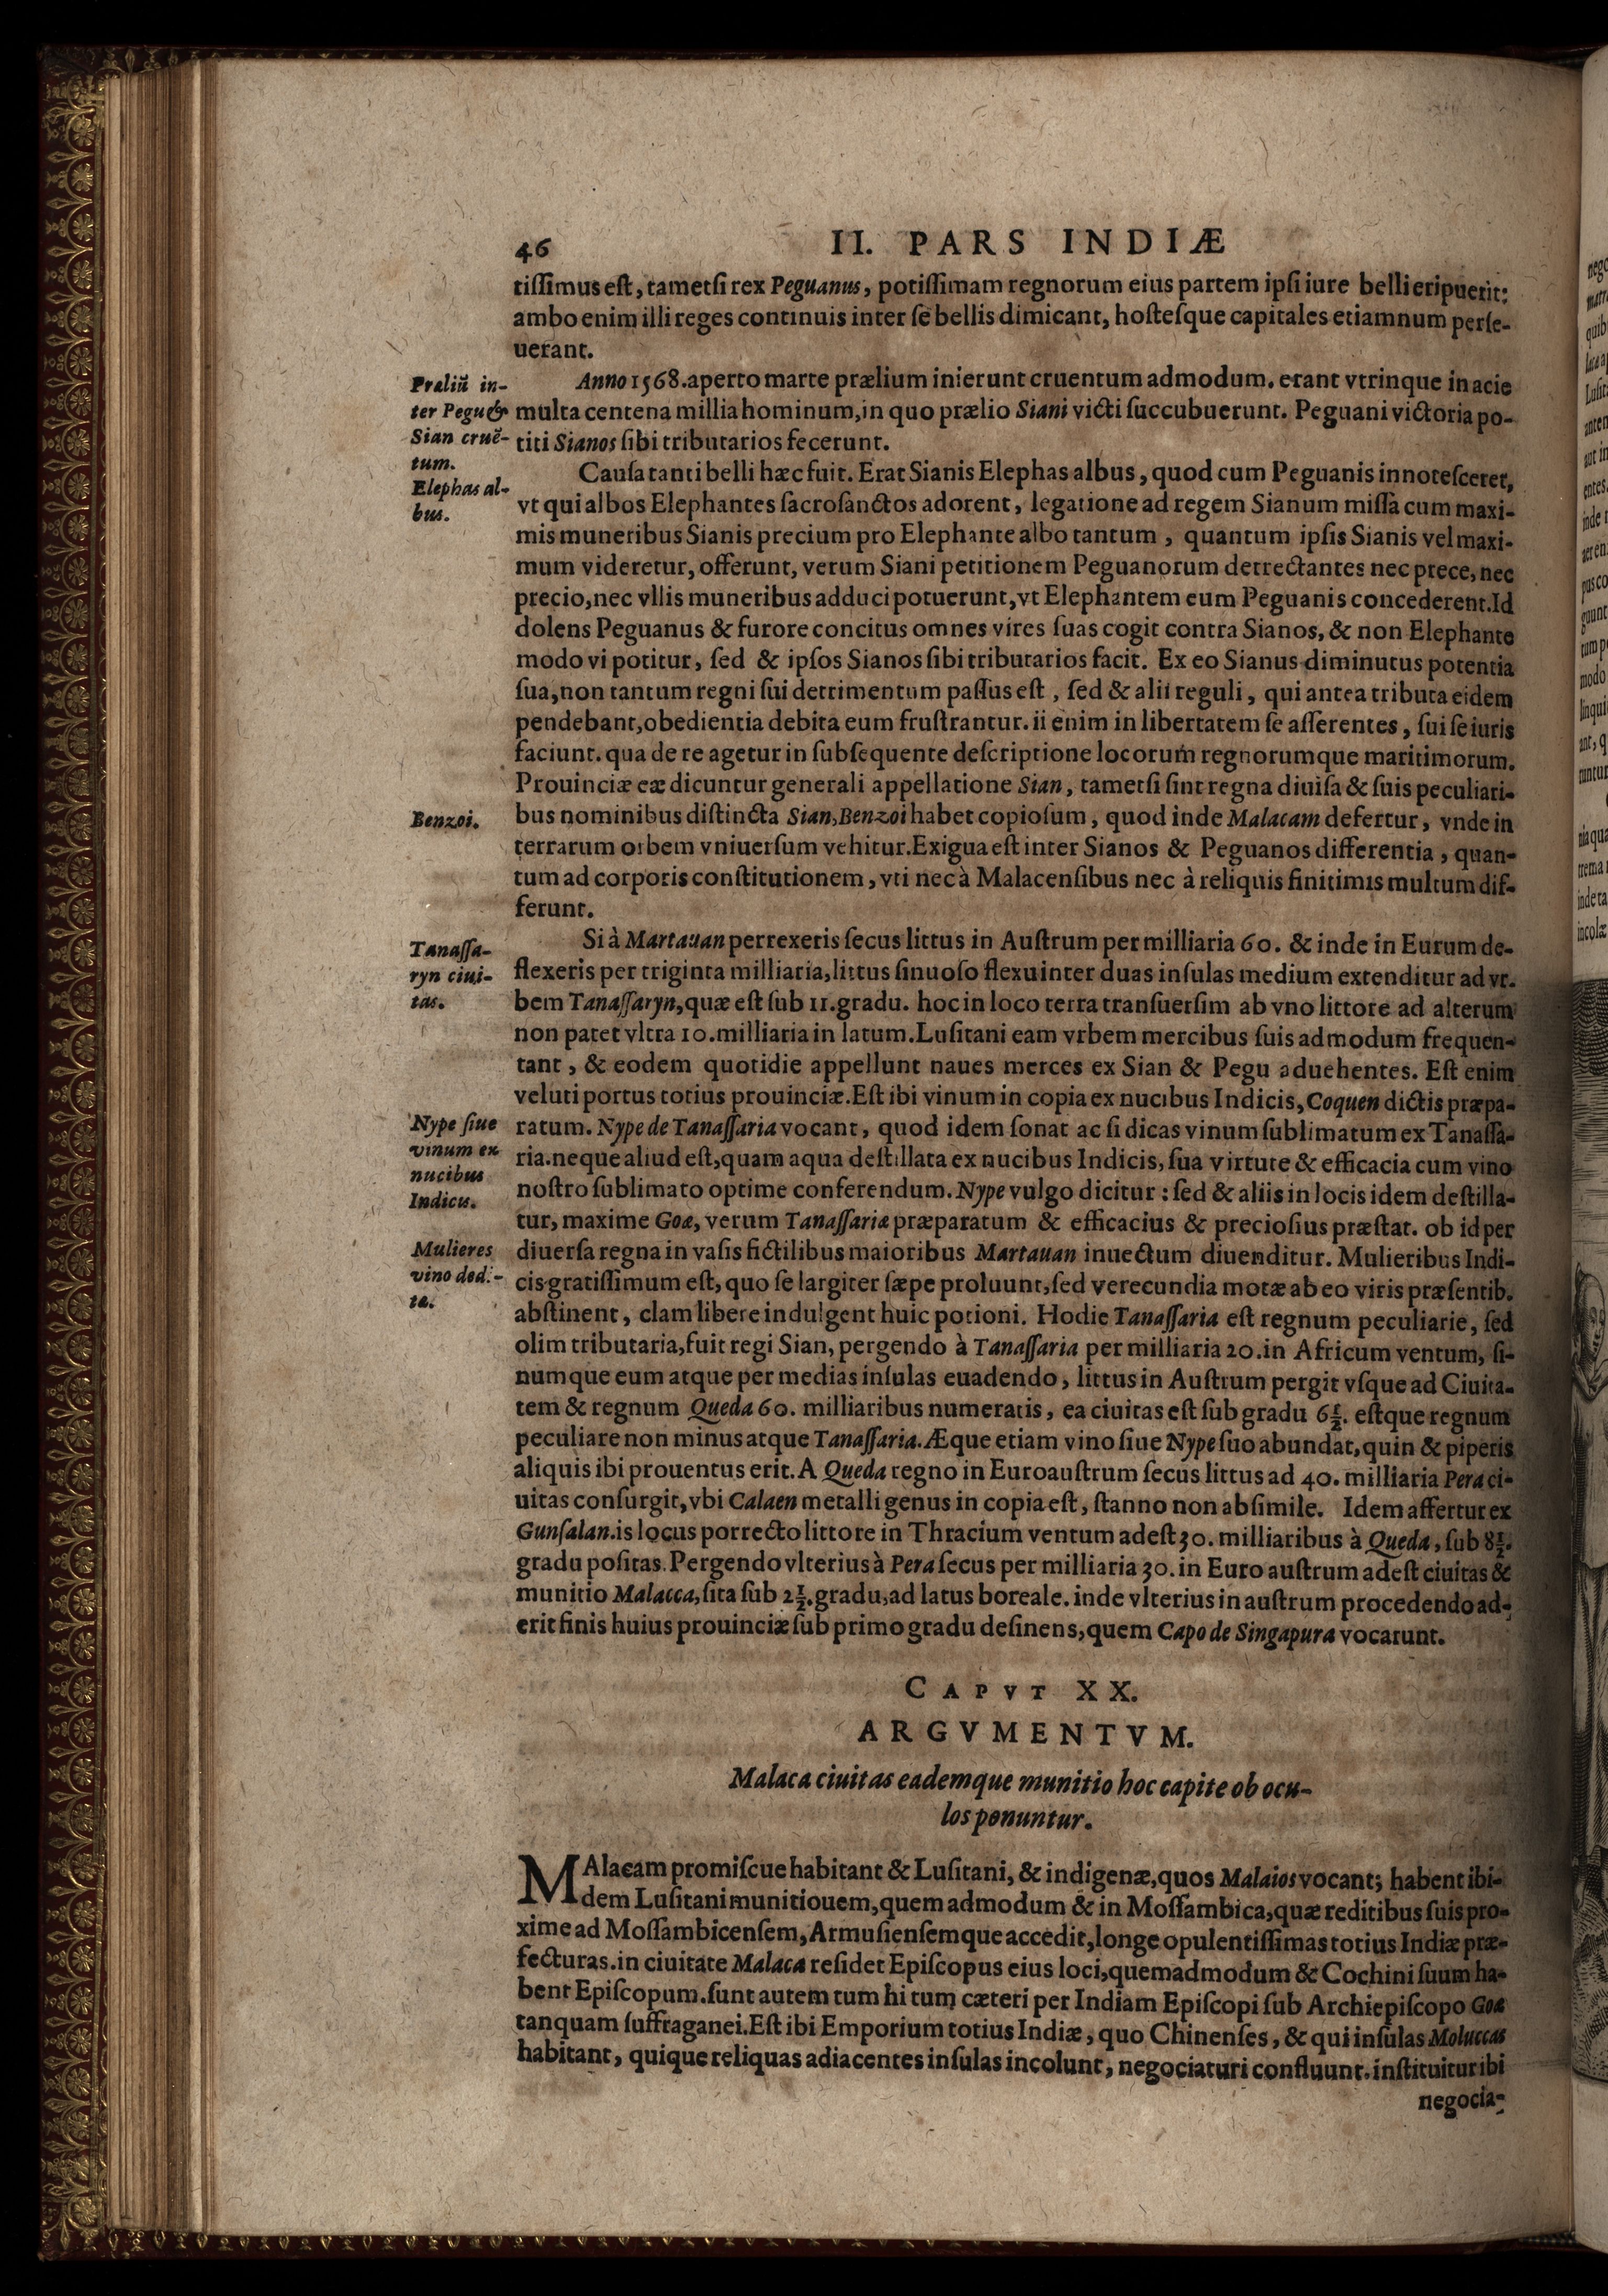 46
II. PARS INDIÆ
tiſſimus eſt, tametſi rex Peguanus, potiſſimam regnorum eius partem ipſi iure belli eripuerit:
ambo enim illi reges continuis inter ſe bellis dimicant, hoſteſque capitales etiamnum perſe-
uerant.
Præliũ in-
ter Pegu &
Sian cruẽ-
tum.
Anno 1568. aperto marte prælium inierunt cruentum admodum. erant vtrinque in acie
multa centena millia hominum, in quo prælio Siani victi ſuccubuerunt. Peguani victoria po-
titi Sianos ſibi tributarios fecerunt.
Elephas al-
bus.
Cauſa tanti belli hæc fuit. Erat Sianis Elephas albus, quod cum Peguanis innoteſceret,
vt qui albos Elephantes ſacroſanctos adorent, legatione ad regem Sianum miſſa cum maxi-
mis muneribus Sianis precium pro Elephante albo tantum, quantum ipſis Sianis vel maxi-
mum videretur, offerunt, verum Siani petitionem Peguanorum detrectantes nec prece, nec
precio, nec vllis muneribus adduci potuerunt, vt Elephantem eum Peguanis concederent. Id
dolens Peguanus & furore concitus omnes vires ſuas cogit contra Sianos, & non Elephante
modo vi potitur, ſed & ipſos Sianos ſibi tributarios facit. Ex eo Sianus diminutus potentia
ſua, non tantum regni ſui detrimentum paſſus eſt, ſed & alii reguli, qui antea tributa eidem
pendebant, obedientia debita eum fruſtrantur. ii enim in libertatem ſe aſſerentes, ſui ſe iuris
faciunt. qua de re agetur in ſubſequente deſcriptione locorum regnorumque maritimorum.
Prouinciæ eæ dicuntur generali appellatione Sian, tametſi ſint regna diuiſa & ſuis peculiari-
Benzoi.
bus nominibus diſtincta Sian, Benzoi habet copioſum, quod inde Malacam defertur, vnde in
terrarum orbem vniuerſum vehitur. Exigua eſt inter Sianos & Peguanos differentia, quan-
tum ad corporis conſtitutionem, vti nec à Malacenſibus nec à reliquis finitimis multum dif-
ferunt.
Tanaſſa-
ryn ciui-
tas.
Si à Martauan perrexeris ſecus littus in Auſtrum per milliaria 60. & inde in Eurum de-
flexeris per triginta milliaria, littus ſinuoſo flexu inter duas inſulas medium extenditur ad vr-
bem Tanaſſaryn, quæ eſt ſub 11. gradu. hoc in loco terra tranſuerſim ab vno littore ad alterum
non patet vltra 10. milliaria in latum. Luſitani eam vrbem mercibus ſuis admodum frequen-
tant, & eodem quotidie appellunt naues merces ex Sian & Pegu aduehentes. Eſt enim
veluti portus totius prouinciæ. Eſt ibi vinum in copia ex nucibus Indicis, Coquen dictis præpa-
Nype ſiue
vinum ex
nucibus
Indicis.
ratum. Nype de Tanaſſaria vocant, quod idem ſonat ac ſi dicas vinum ſublimatum ex Tanaſſa-
ria. neque aliud eſt, quam aqua deſtillata ex nucibus Indicis, ſua virtute & efficacia cum vino
noſtro ſublimato optime conferendum. Nype vulgo dicitur: ſed & aliis in locis idem deſtilla-
tur, maxime Goæ, verum Tanaſſariæ præparatum & efficacius & precioſius præſtat. ob id per
Mulieres
vino dedi-
tæ.
diuerſa regna in vaſis fictilibus maioribus Martauan inuectum diuenditur. Mulieribus Indi-
cis gratiſſimum eſt, quo ſe largiter ſæpe proluunt, ſed verecundia motæ ab eo viris præſentib.
abſtinent, clam libere indulgent huic potioni. Hodie Tanaſſaria eſt regnum peculiarie, ſed
olim tributaria, fuit regi Sian, pergendo à Tanaſſaria per milliaria 20. in Africum ventum, ſi-
numque eum atque per medias inſulas euadendo, littus in Auſtrum pergit vſque ad Ciuita-
tem & regnum Queda 60. milliaribus numeratis, ea ciuitas eſt ſub gradu 6½. eſtque regnum
peculiare non minus atque Tanaſſaria. Æque etiam vino ſiue Nype ſuo abundat, quin & piperis
aliquis ibi prouentus erit. A Queda regno in Euroauſtrum ſecus littus ad 40. milliaria Pera ci-
uitas conſurgit, vbi Calaen metalli genus in copia eſt, ſtanno non abſimile. Idem affertur ex
Gunſalan. is locus porrecto littore in Thracium ventum adeſt 30. milliaribus à Queda, ſub 8½.
gradu poſitas. Pergendo vlterius à Pera ſecus per milliaria 30. in Euro auſtrum adeſt ciuitas &
munitio Malacca, ſita ſub 2½. gradu, ad latus boreale. inde vlterius in auſtrum procedendo ad-
erit finis huius prouinciæ ſub primo gradu deſinens, quem Capo de Singapura vocarunt.
CAPVT XX.
ARGVMENTVM.
Malaca ciuitas eademque munitio hoc capite ob ocu-
los ponuntur.
MAlacam promiſcue habitant & Luſitani, & indigenæ, quos Malaios vocant; habent ibi-
dem Luſitani munitiouem, quemadmodum & in Moſſambica, quæ reditibus ſuis pro-
xime ad Moſſambicenſem, Armuſienſemque accedit, longe opulentiſſimas totius Indiæ præ-
fecturas. in ciuitate Malaca reſidet Epiſcopus eius loci, quemadmodum & Cochini ſuum ha-
bent Epiſcopum. ſunt autem tum hi tum cæteri per Indiam Epiſcopi ſub Archiepiſcopo Goæ
tanquam ſuffraganei. Eſt ibi Emporium totius Indiæ, quo Chinenſes, & qui inſulas Moluccas
habitant, quique reliquas adiacentes inſulas incolunt, negociaturi confluunt. inſtituitur ibi
negocia-